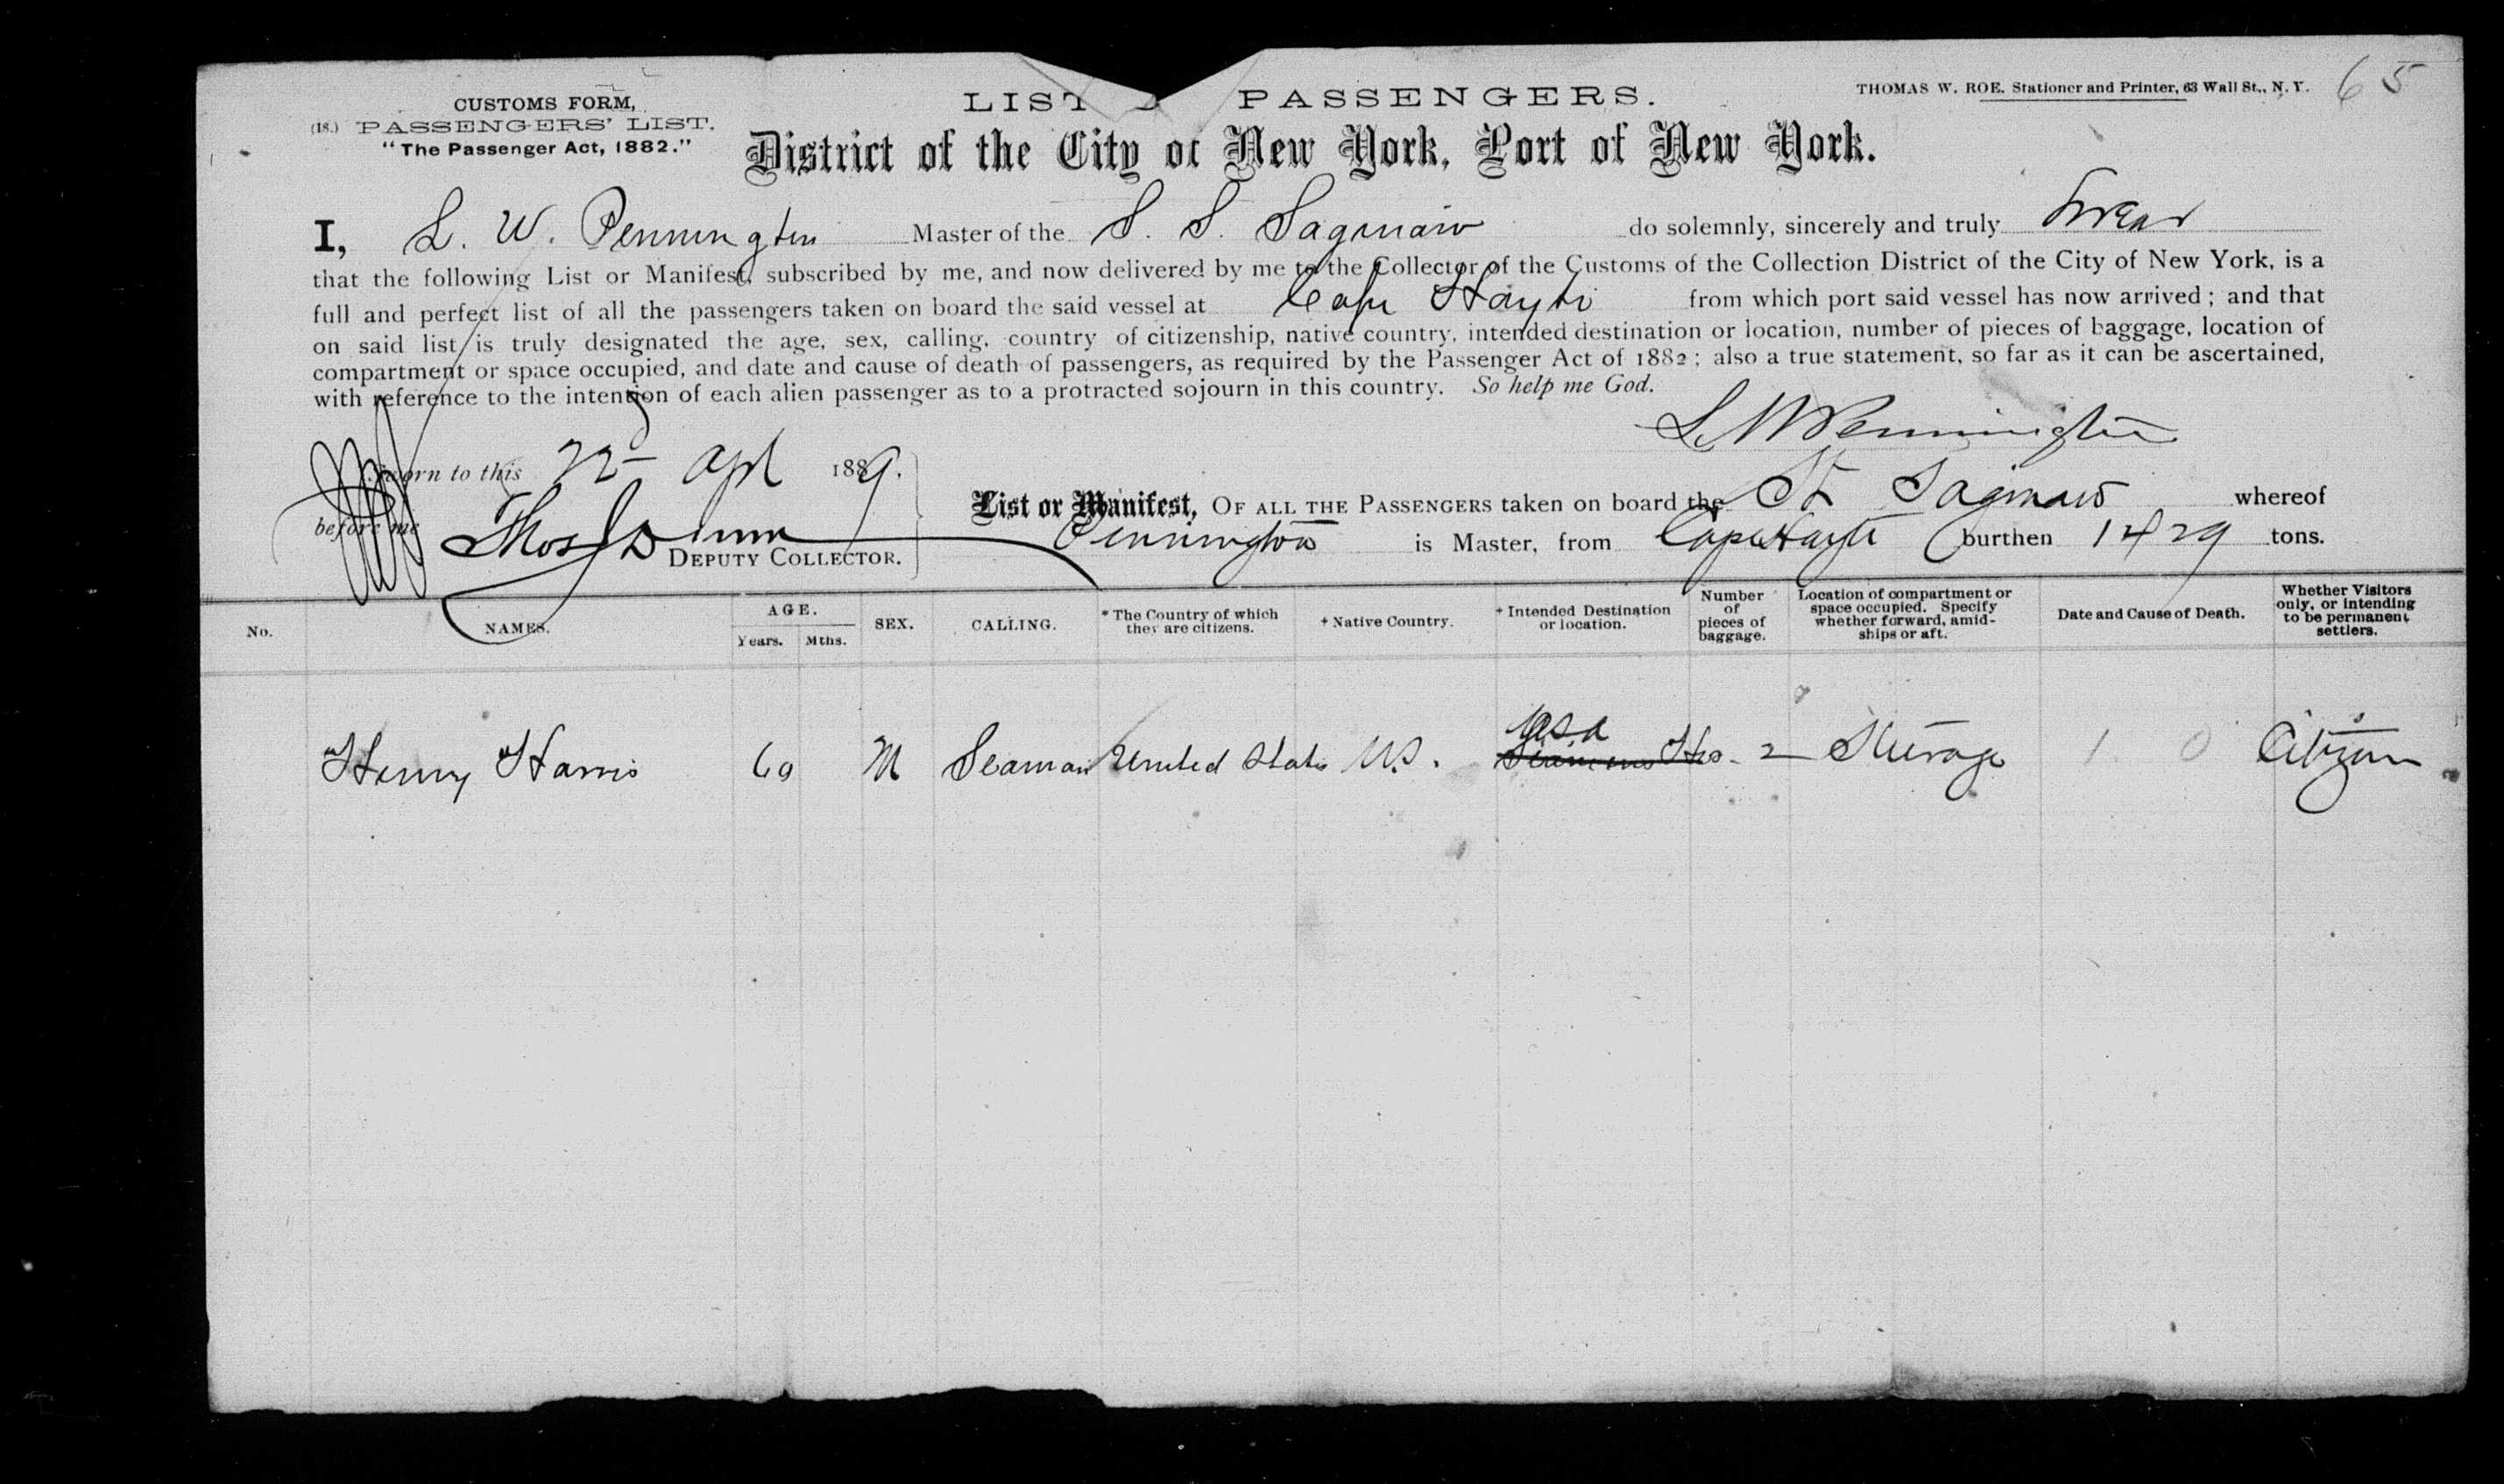 65
THOMAS W. ROE, Stationer and Printer, 63 Wall St., N. Y.
CUSTOMS FORM,
(18.) PASSENGERS' LIST.
"The Passenger Act, 1882."
LIST PASSENGERS.
District of the City of New York, Port of New York.
I, L. W. Pennington Master of the S. S. Saginaw do solemnly, sincerely and truly swear
that the following List or Manifest, subscribed by me, and now delivered by me to the Collector of the Customs of the Collection District of the City of New York, is a
full and perfect list of all the passengers taken on board the said vessel at Cape Hayti from which port said vessel has now arrived; and that
on said list is truly designated the age, sex, calling, country of citizenship, native country, intended destination or location, number of pieces of baggage, location of
compartment or space occupied, and date and cause of death of passengers, as required by the Passenger Act of 1882; also a true statement, so far as it can be ascertained,
with reference to the intention of each alien passenger as to a protracted sojourn in this country. So help me God.
L W Pennington
Sworn to this 22 Apl 1889.
before me Thos Dunn
DEPUTY COLLECTOR.
List or Manifest, OF ALL THE PASSENGERS taken on board the St Saginaw whereof
Pennington is Master, from Cape Hayti burthen 1429 tons.
No. NAMES. AGE. Years. Mths. SEX. CALLING. * The Country of which they are citizens. + Native Country. + Intended Destination or location. Number of pieces of baggage. Location of compartment or space occupied. Specify whether forward, amid-ships or aft. Date and Cause of Death. Whether Visitors only, or intending to be permanent settlers.
Henry Harris 60 M Seaman United States U.S. USA 2 Steerage Citizen